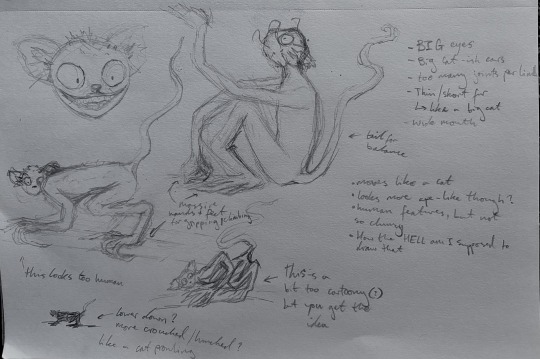 - BIG eyes
- Big cat-ish ears
- too many joints per limb
- Thin/short fur
↳ like a big cat
- wide mouth
← tail for
balance
• moves like a cat
• looks more ape-like though?
• human features, but not
so clumsy
• How the HELL am I supposed to
draw that
massive
hands & feet
for gripping & climbing
↑ this looks too human
← this is a
bit too cartoony
but you get the
idea
← lower down?
more crouched/hunched?
like a cat prowling